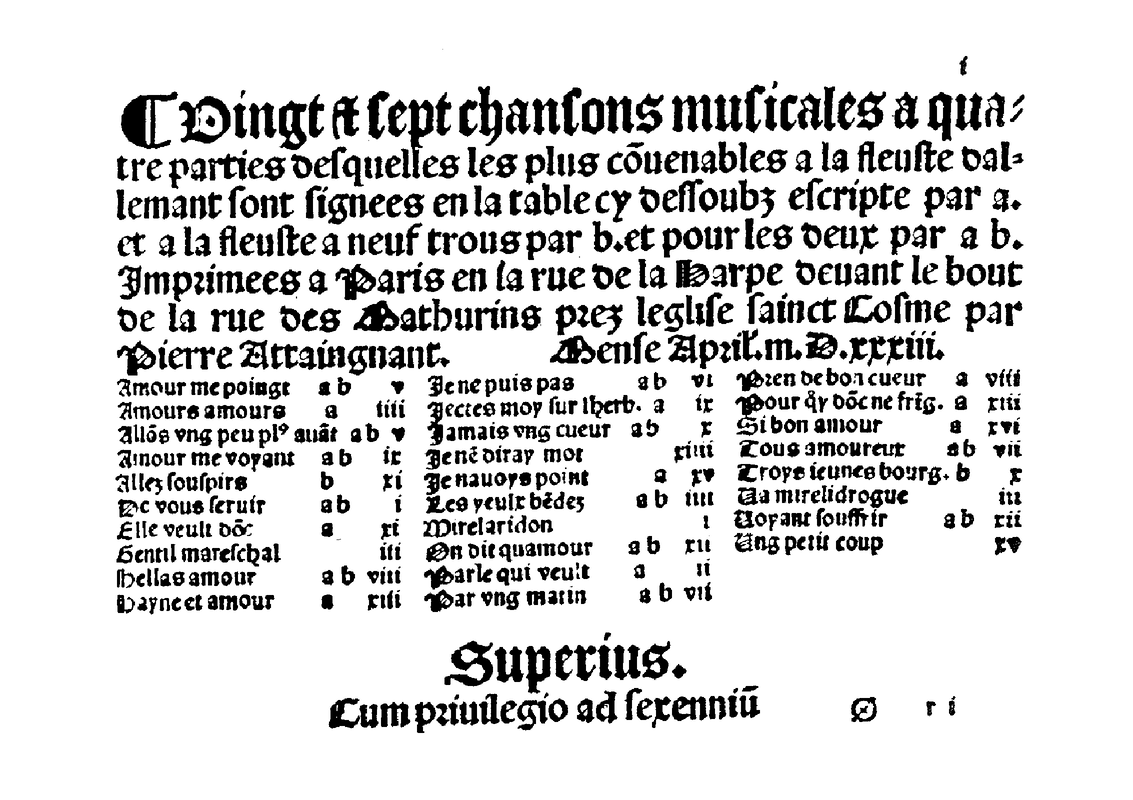 i
¶ Vingt & sept chanſons muſicales a qua⸗
tre parties deſquelles les plus cõuenables a la fleuſte dal⸗
lemant ſont ſignees en la table cy deſſoubz eſcripte par a.
et a la fleuſte a neuf trous par b. et pour les deux par a b.
Imprimees a Paris en la rue de la Harpe deuant le bout
de la rue des Mathurins prez legliſe ſainct Coſme par
Pierre Attaingnant. Menſe April. m. D. xxxiii.
Amour me poingt a b v
Amours amours a iiii
Allõs vng peu pl⁹ auãt a b v
Amour me voyant a b ix
Allez ſouſpirs b xi
De vous ſeruir a b i
Elle veult dõc a xi
Gentil mareſchal iii
Hellas amour a b viii
Hayne et amour a xiii
Je ne puis pas a b vi
Jectes moy ſur lherb. a ix
Jamais vng cueur a b x
Je nẽ diray mot xiiii
Je nauoys point a xv
Les yeulx bẽdez a b iiii
Mirelaridon i
On dit quamour a b xii
Parle qui veult a ii
Par vng matin a b vii
Pren de bon cueur a viii
Pour q̃y dõc ne friq. a xiii
Si bon amour a xvi
Tous amoureux a b vii
Troys ieunes bourg. b x
Va mirelidrogue iii
Voyant ſouffrir a b xii
Ung petit coup xv
Superius.
Cum priuilegio ad ſexenniũ
Ø r i